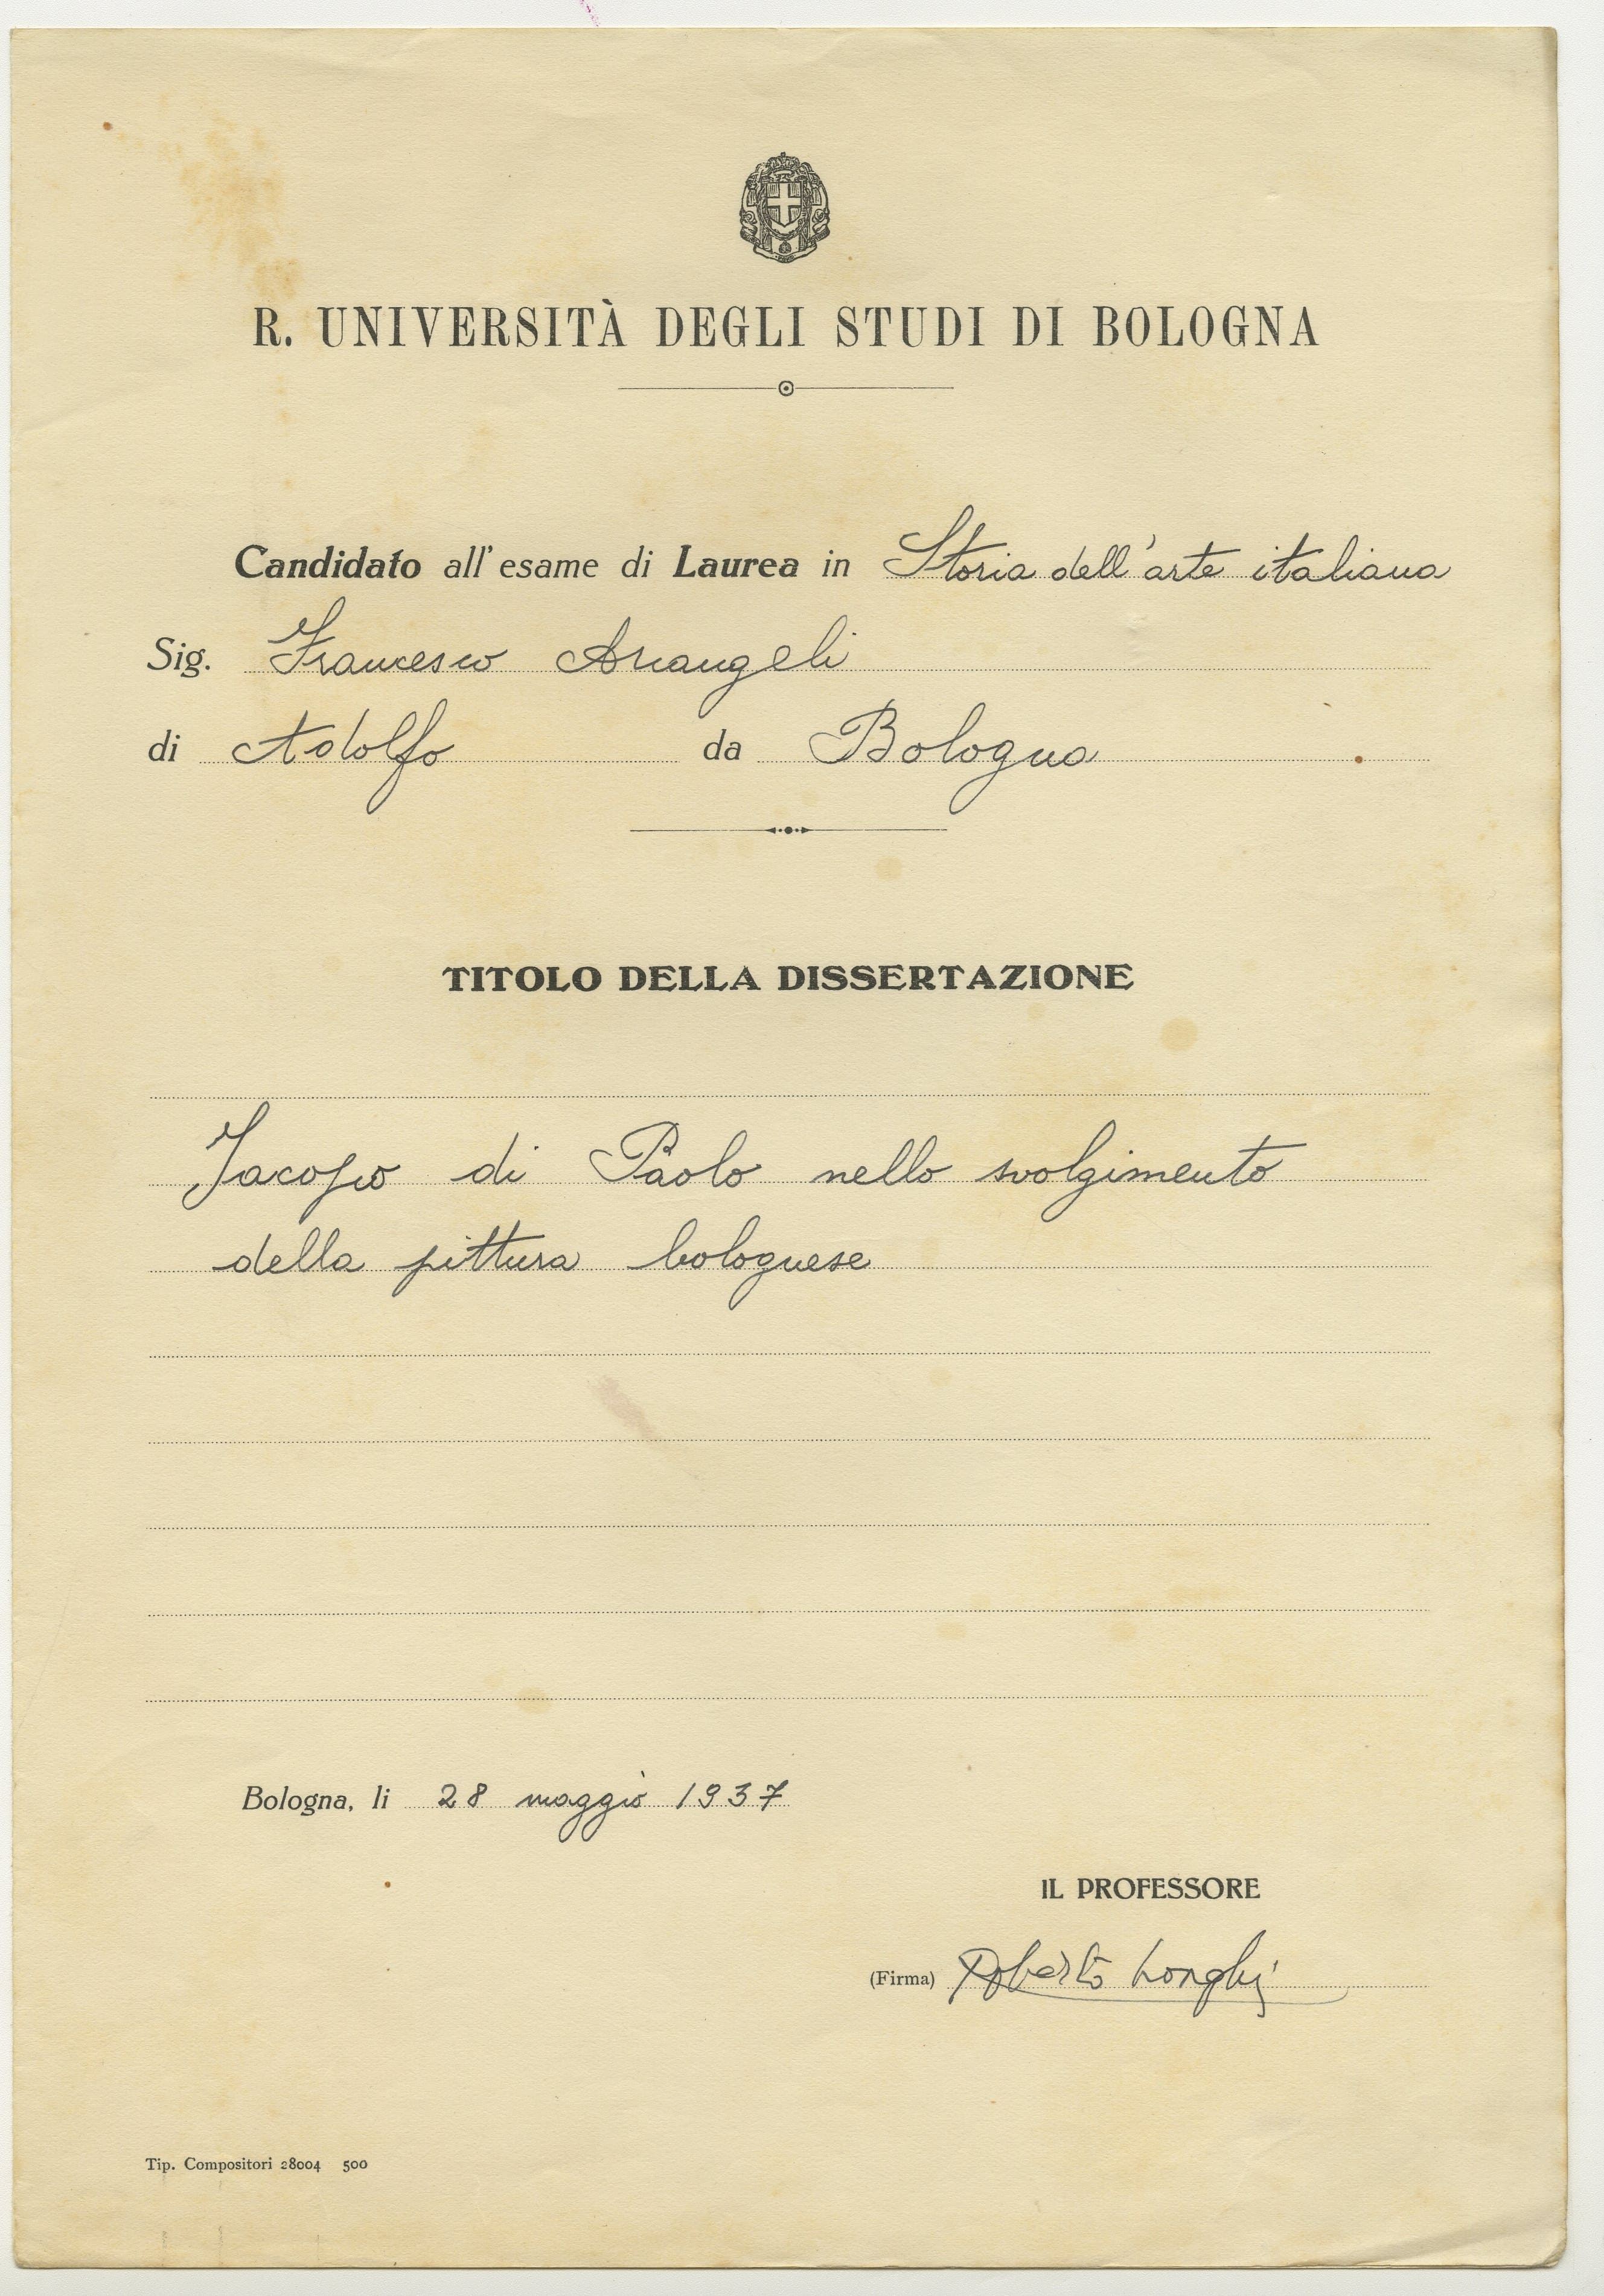 R. UNIVERSITÀ DEGLI STUDI DI BOLOGNA
Candidato all'esame di Laurea in Storia dell'arte italiana
Sig. Francesco Arcangeli
di Adolfo da Bologna
TITOLO DELLA DISSERTAZIONE
Jacopo di Paolo nello svolgimento
della pittura bolognese
Bologna, li 28 maggio 1937
IL PROFESSORE
(Firma) Roberto Longhi
Tip. Compositori 28004 500